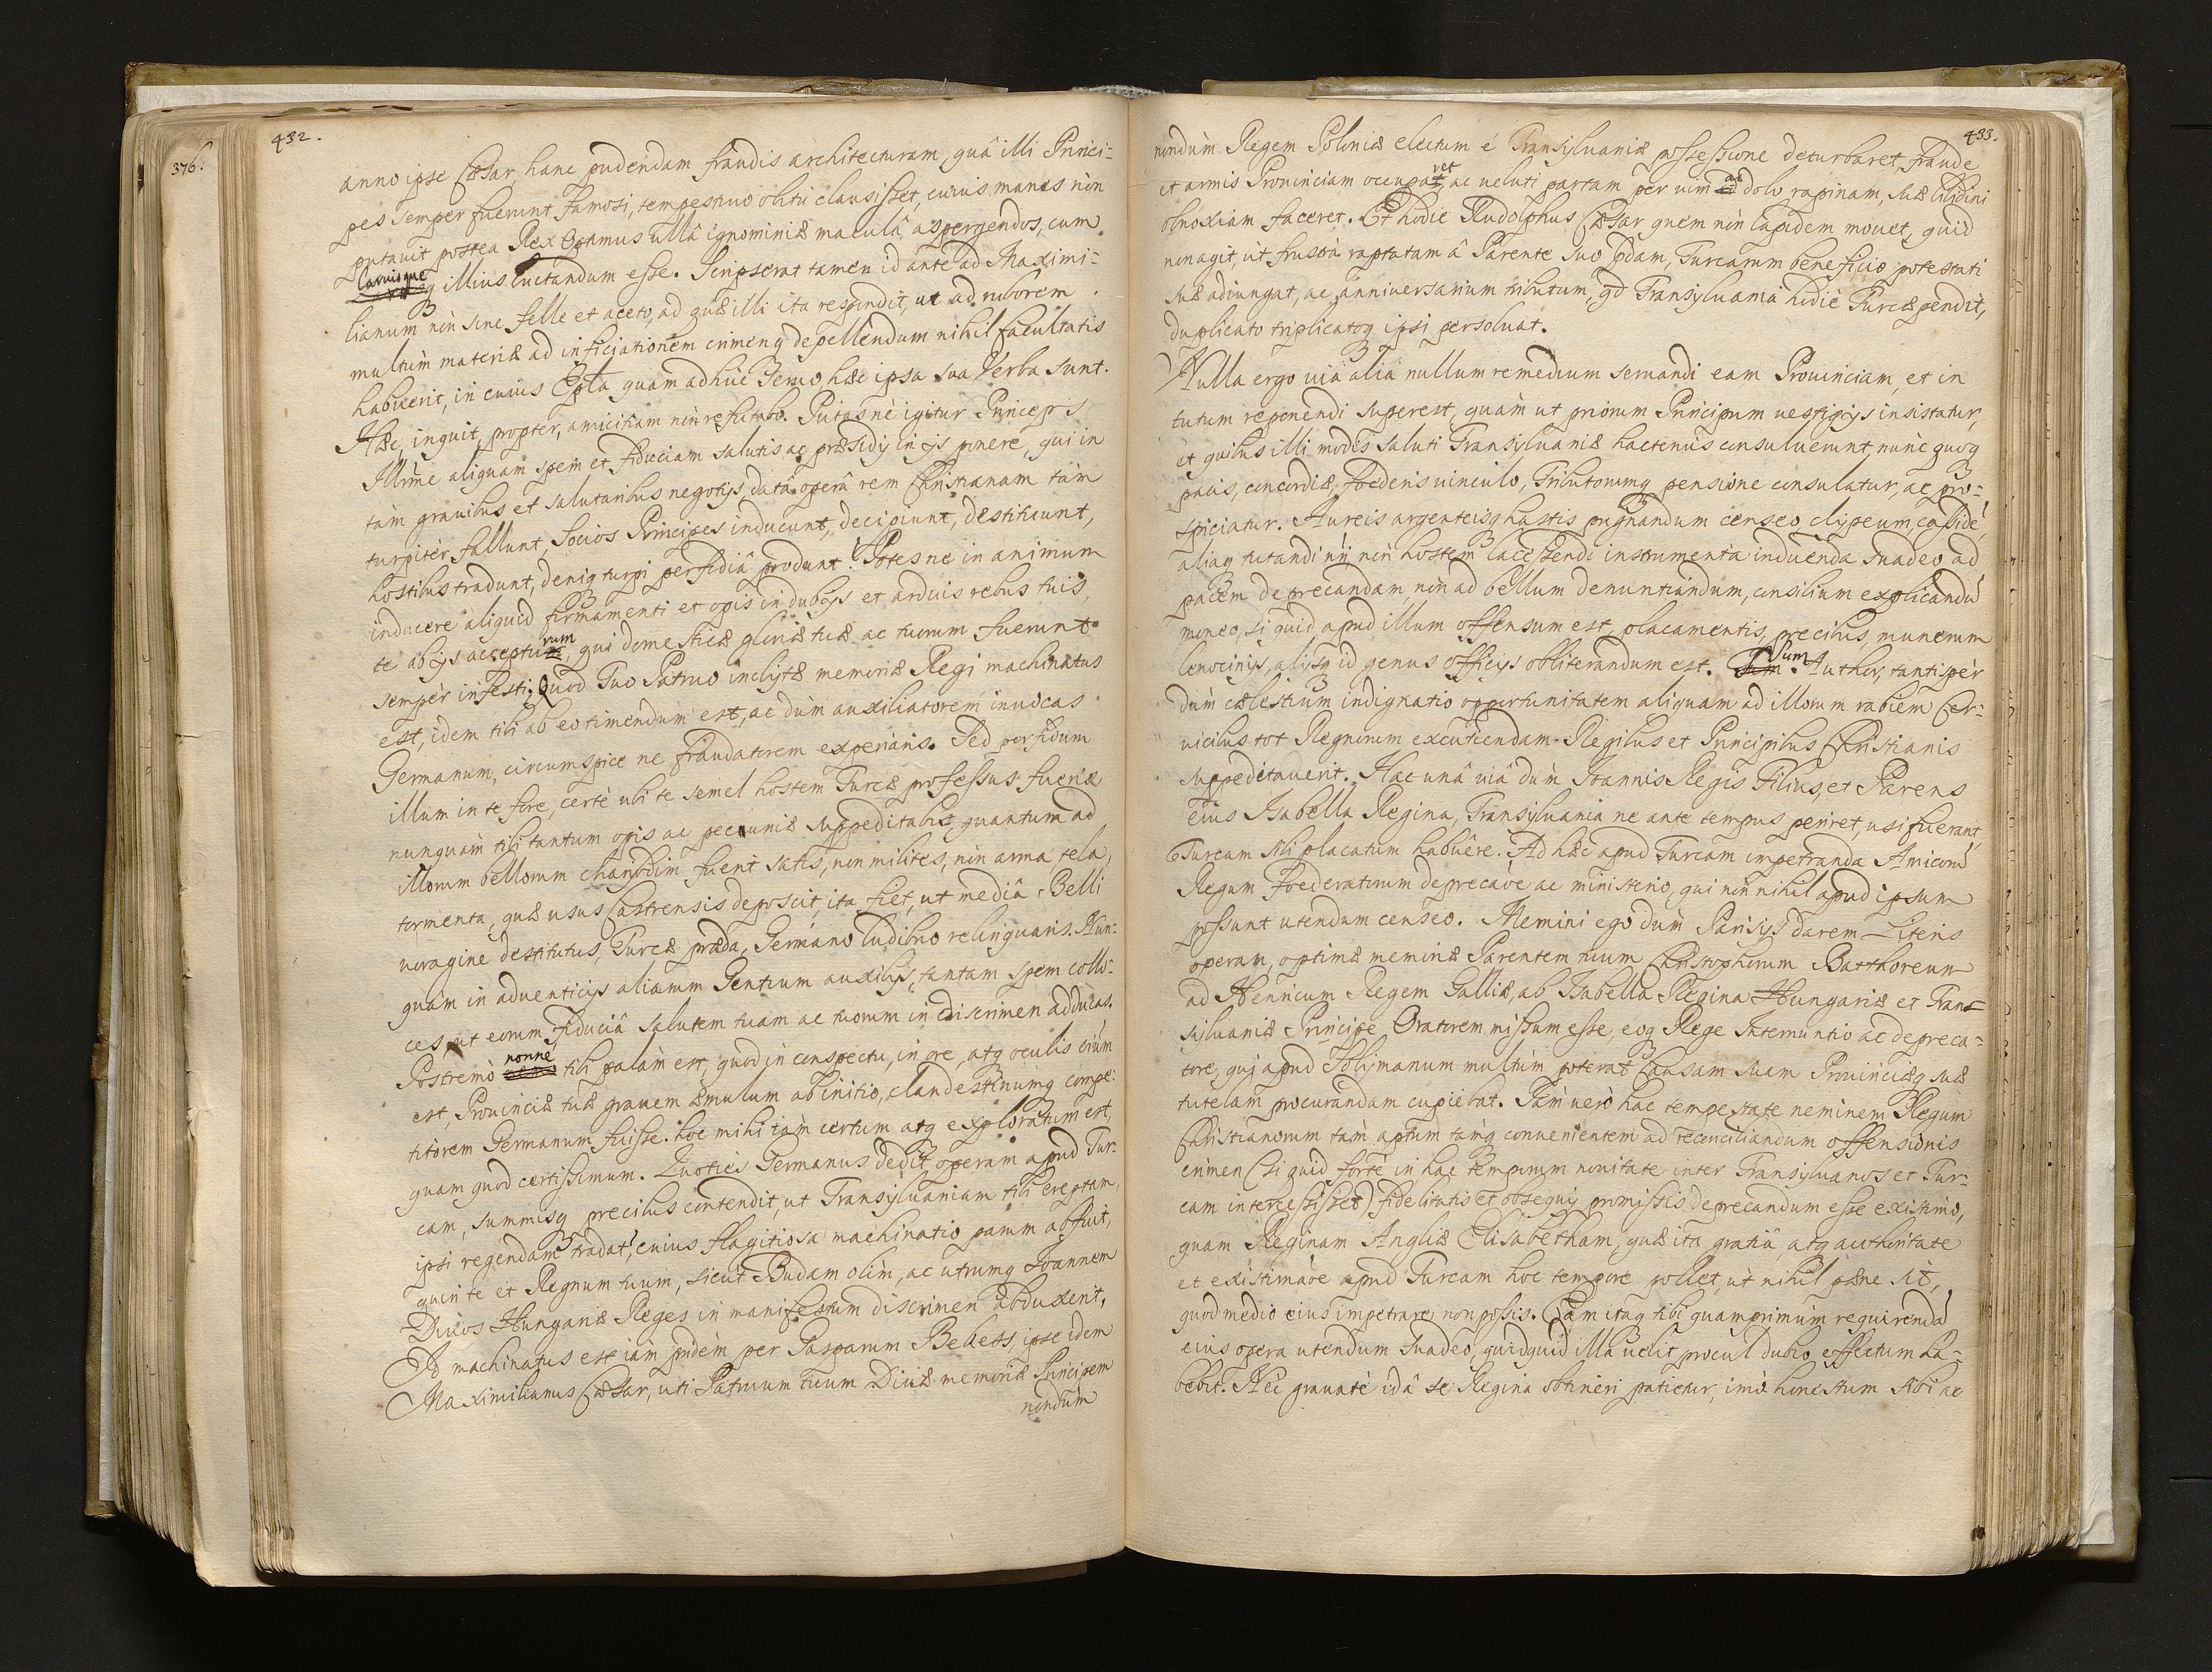 376.
432.
anno ipse Cæsar, hanc pudendam fraudis architecturam, quâ illi Princi-
pes semper fuerunt famosi, tempestivo obitu clausisset, cuius manes non
putavit postea Rex Optimus ullâ ignominiæ maculâ aspergendos, cum
Larvisque illius luctandum esse. Scripserat tamen id ante ad Maximi-
lianum non sine felle et aceto, ad quæ illi ita respondit, ut ad ruborem
multum materiæ ad inficiationem crimenq depellendum nihil facultatis
habuerit, in cuius Epla quam adhuc Zemo hæc ipsa sua Verba sunt.
Hæc, inquit, propter, amicitiam non refutabo. Putasnè igitur Princeps
Illrme aliquam spem et fiduciam salutis ac præsidij in ijs ponere, qui in
tàm gravibus et salutaribus negotijs, datâ operâ rem Christianam tàm
turpitèr fallunt, Socios Principes inducunt, decipiunt, destituunt,
hostibus tradunt, deniq turpi perfidiâ produnt? Potesne in animum
inducere aliquid firmamenti et opis in dubijs et arduis rebus tuis,
te ab ijs accepturum, qui domesticæ gloriæ tuæ ac tuorum fuerunt
semper infesti; Quod Tuo Patruo inclytæ memoriæ Regi machinatus
est, idem tibi ab eo timendum est, ac dùm auxiliatorem invocas
Germanum, circumspice ne fraudatorem experiaris. Sed perfidum
illum in te fore, certè ubi te semel hostem Turcæ professus fueris
nunquam tibi tantum opis ac pecuniæ suppeditabit, quantum ad
illorum bellorum charybdim fuerit satis, non milites, non arma tela,
tormenta, quæ usus Castrensis deposcit, ita fiet, ut mediâ Belli
voragine destitutus, Turcæ præda, Germano ludibrio relinquaris. Nun-
quam in adventicijs aliarum Gentium auxilijs, tantam spem collo-
ces, ut eorum fiduciâ salutem tuam ac tuorum in discrimen adducas.
Postremò nonne tibi palàm est, quod in conspectu, in ore, atq oculis eiùm
est, Provinciæ tuæ gravem æmulum ab initio, clandestinumq compe-
titorem Germanum fuisse. hoc mihi tàm certum atq exploratum est,
quam quod certissimum. Quoties Germanus dedit operam apud Tur-
cam, summisq precibus contendit, ut Transylvaniam tibi ereptam,
ipsi regendam tradat, cuius flagitiosa machinatio parum abfuit,
quin te et Regnum tuum, sicut Budam olim, ac utrumq Ioannem
Divos Hungariæ Reges in manifestum discrimen adduxerit,
Id machinatus est iàm pridèm per Gasparum Bekess, ipse idem
Maximilianus Cæsar, uti Patruum tuum Divæ memoriæ Principem
nondùm
433.
nondùm Regem Poloniæ electum è Transylvaniæ possessione deturbaret, fraude
et armis Provinciam occuparet ac veluti partam per vim ac dolo rapinam, suæ libidini
obnoxiam faceret. Et hodie Rudolphus Cæsar quem non lapidem movet, quid
non agit, ut frustra raptatam â Parente suo pdam, Turcarum beneficio potestati
suæ adiungat, ac anniversarium tributum, qd Transylvania hodiè Turcæ pendit,
duplicato triplicatoq ipsi persolvat.
Nulla ergo viâ alia nullum remedium servandi eam Provinciam, et in
tutum reponendi superest, quàm ut priorum Principum vestigijs insistatur,
et quibus illi modis saluti Transylvaniæ hactenùs consuluerunt, nunc quoq
pacis, concordiæ, foederis vinculo, Tributorumq pensione consulatur, ac pro-
spiciatur. Aureis argenteisq hastis pugnandum censeo, clypeum, casside,
aliaq tutandi vij, non hostem lacessendi instrumenta induenda suadeo, ad
pacem deprecandam, non ad bellum denuntiandum, consilium explicandu
moneo, si quid apud illum offensum est placamentis, precibus, munerum
lenocinijs, alijsq id genus officijs obliterandum est. Sum Author, tantispèr
dùm cælestium indignatio opportunitatem aliquam ad illorum rabiem Cer-
vicibus tot Regnorum excutiendam. Regibus et Principibus Christianis
suppeditaverit. Hac unâ viâ dùm Ioannis Regis Filius, et Parens
eius Isabella Regina, Transylvania ne ante tempus periret, usi fuerant,
Turcam sibi placatum habuêre. Ad hæc apud Turcam impetranda Amicorũ
Regum Foederatorum deprecatõe ac ministerio, qui non nihil apud ipsum
possunt utendum censeo. Memini ego dum Parisijs darem Literis
operam, optimæ memoriæ Parentem tuum Christophorum Batthoreum
ad Henricum Regem Galliæ, ab Isabella Regina Hungariæ et Tran-
sylvaniæ Principe Oratorem missum esse, eoq Rege Internuntio ac depreca-
tore, qui apud Solymanum multùm poterat Causam suam Provinciæq suæ
tutelam procurandam cupiebat. Iàm verò hac tempestate neminem Regum
Christianorum tàm aptum tàmq convenientem ad reconciliandum offensionis
crimen (si quid fortè in hac temporum novitate inter Transylvanos et Tur-
cam intercessisset) fidelitatis et obsequij promissis deprecandum esse existimo,
quam Reginam Angliæ Elisabetham, quæ ita gratiâ atq authoritate
et existimatõe apud Turcam hoc tempore pollet, ut nihil pæne sit,
quod medio eius impetrare non possis. Eam itaq tibi quamprimùm requirendâ
eius opera utendum suadeo, quidquid Illa velit, procul dubio effectum ha-
bebit. Nec gravatè id â se Regina obtineri patietur, imò honestum sibi ac